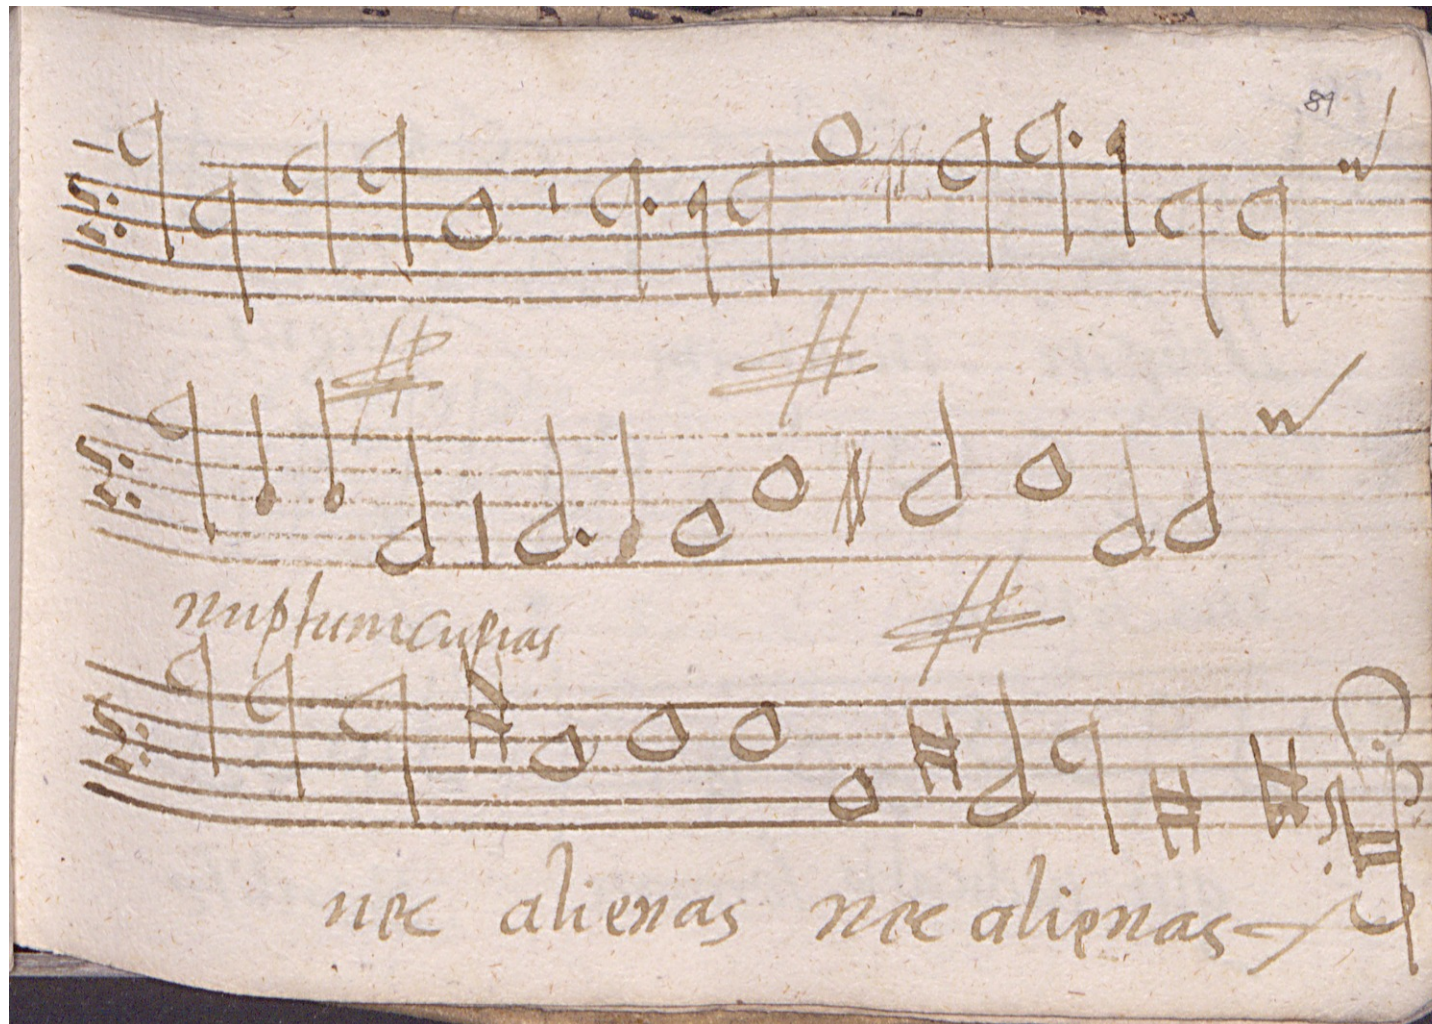 89
nuptum cupias
nec alienas nec alienas